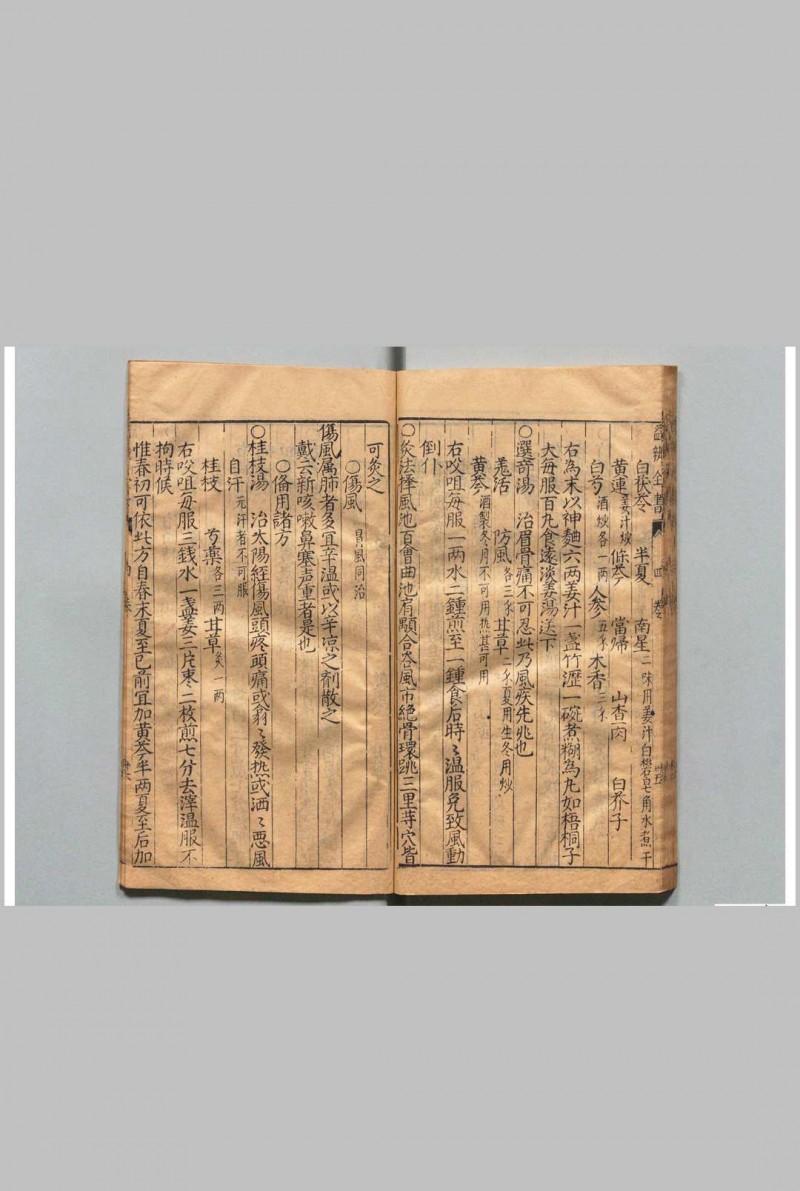 白茯苓 半夏 南星二味用姜汁白礬皂角水煮干
黄連姜汁炒 條芩 當帰 山查肉 白芥子
白芍酒炒各一両 人參五分 木香三分
右為末以神麯六两姜汁一盏竹瀝一碗煮糊為丸如梧桐子
大每服百丸食遠淡姜湯送下
○選奇湯 治眉骨痛不可忍此乃風疾先兆也
羗活 防風各三分 甘草二分夏用生冬用炒
黄芩酒製冬月不可用热甚可用
右㕮咀每服一两水二鍾煎至一鍾食后時〻温服免致風動
倒仆
○灸法捧風池百會曲池有顒合峇風市绝骨環跳三里等穴皆
可灸之
○傷風 冐風同治
傷風属肺者多宜辛温或以辛凉之剤散之
戴云新咳嗽鼻塞声重者是也
○俻用諸方
○桂枝湯 治太陽經傷風頭疼頭痛或翕〻發热或洒〻悪風
自汗 元汗者不可服
桂枝 芍藥各三两 甘草炙一两
右㕮咀每服三錢水一盏姜三片枣二枚煎七分去滓温服不
拘時候
惟春初可依此方自春末夏至已前宜加黄芩半两夏至后加